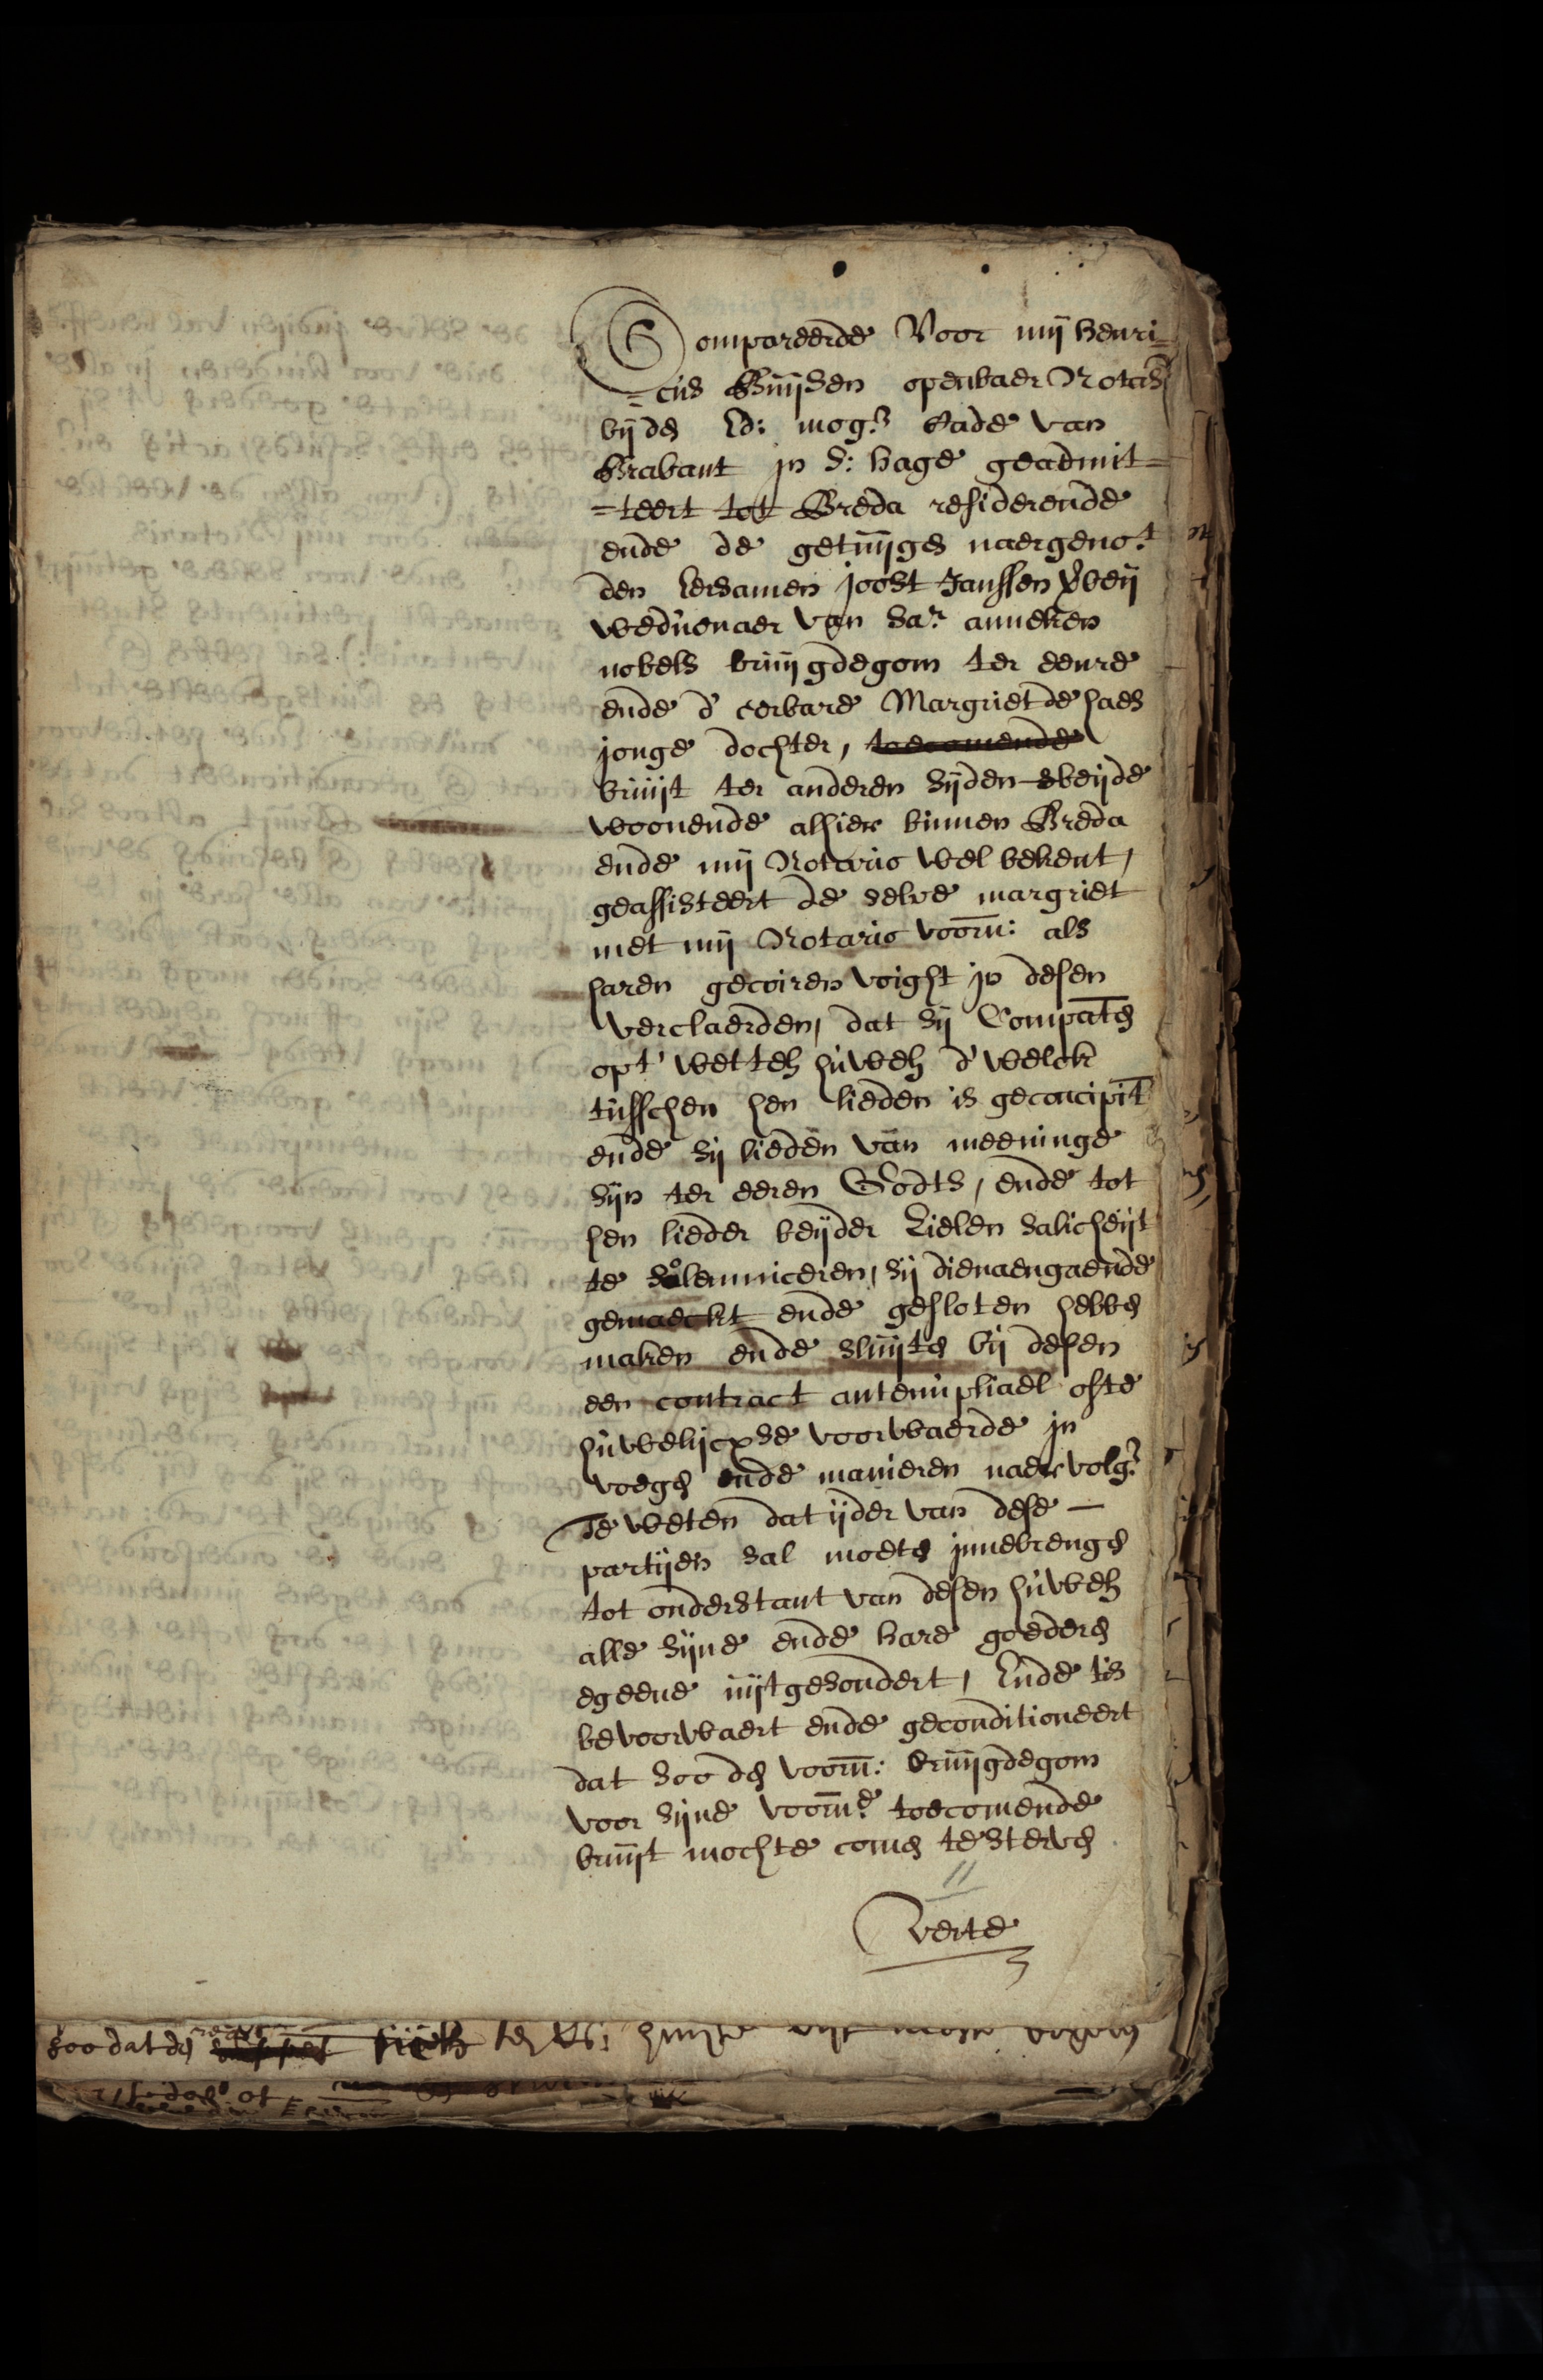 Compareerde Voor mij henri=
=cus Buijsen openbaer Notaris
bij den Ed: mog. Rade van
Brabant in S: hage geadmit=
=teert tot Breda residerende
ende de getuijgen naergeno.t
den Eersamen joost Janssen
weduenaer van Za: anneken
nobels bruijgdegom ter eenre
ende d' eerbare Margriet de haes
jonge dochter, toecomende
bruijt ter anderen sijden beijde
woonende alhier binnen Breda
ende mij Notario wel bekent,
geassisteert de selve margriet
met mij Notario voorn: als
haren gecoiren voight in desen
verclaerden, dat sij Compaten
opt' wettch huwelh d' welck
tusschen hen lieden is geconcipit
ende sij lieden van meeninge
sijn ter eeren Godts, ende tot
hen lieder beijder Zielen salicheijt
te solemniceren, sij dienaengaende
gemaeckt ende gesloten hebben
maken ende sluijten bij desen
een contract antenuptiael ofte
huwelijcxse voorwaerde in
voegen ende manieren naer volg.
Te weten dat ijder van dese -
partijen sal moeten innebrengen
tot onderstant van desen huwelh
alle sijne ende hare goederen
egeene uijtgesondert, Ende tis
bevoorwaert ende geconditioneert
dat soo den voorn: bruijgdegom
voor sijne voornde. toecomende
bruijt mochte comen te sterven
Verte
soo dat den